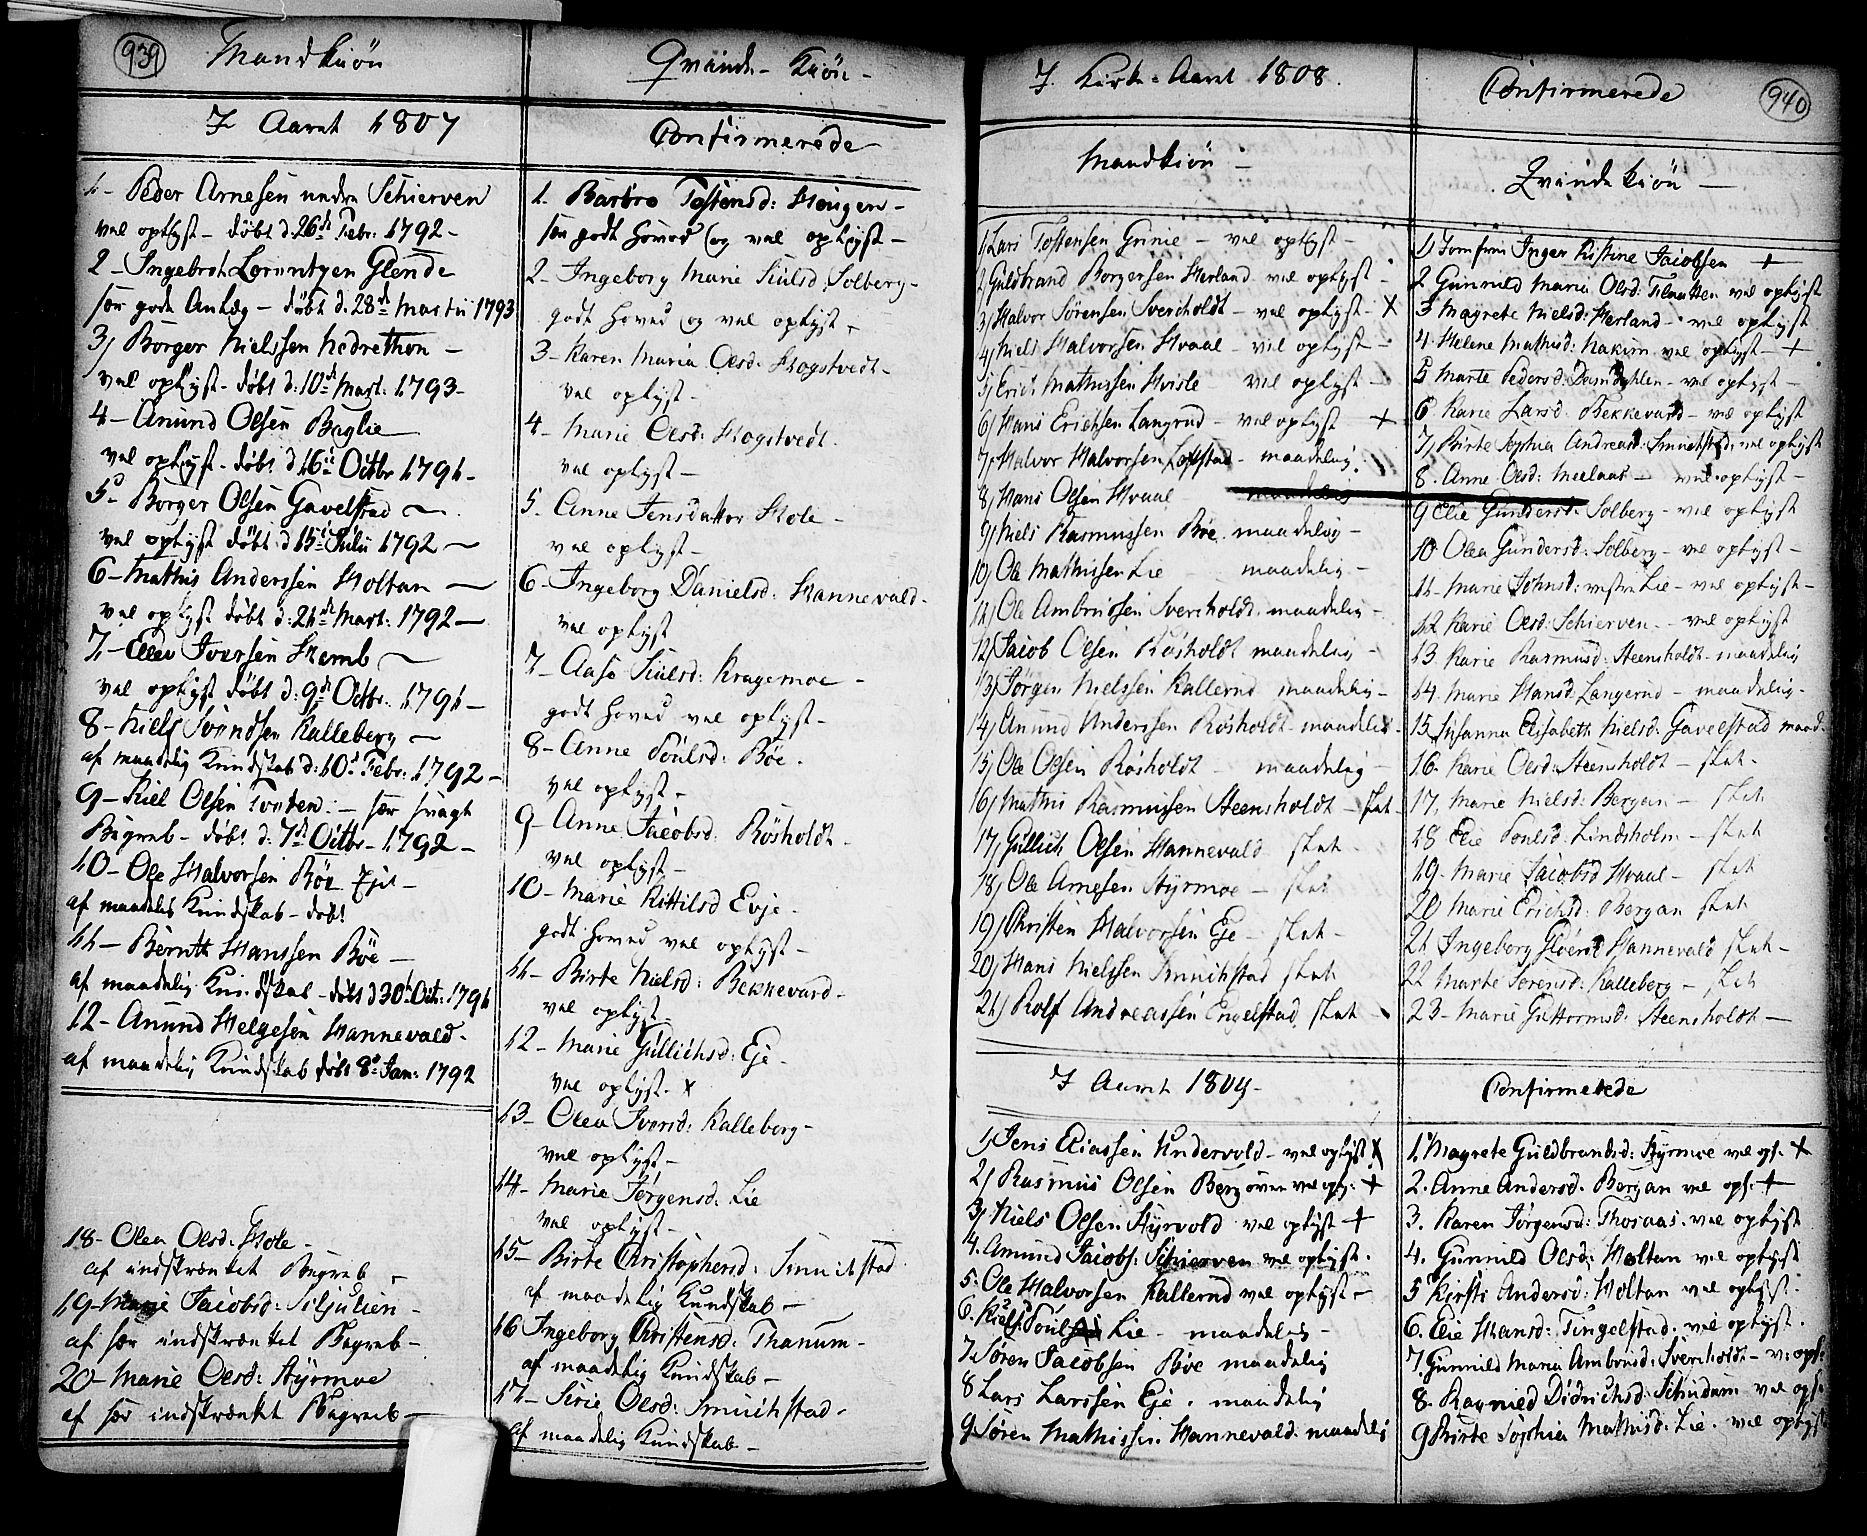 939
Mandkiön
I Aaret 1807
1- Peder Arnesen nedre Schierven
vel oplyst - döbt d. 26de Febr. 1792 -
2 - Ingebret Lorentzen Glende
sær gode Anlæg - döbt d. 28de Martii 1793
3, Borger Nielssen Nedrethon -
vel oplyst - döbt d: 10de Mart. 1793 -
4 - Amund Olsen Baglie
vel oplyst - döbt d 16de Octbr 1791 -
5 - Borger Olsen Gavelstad -
vel oplyst döbt d 15de Julii 1792 -
6 - Mathis Anderssen Holtan -
vel oplyst döbt d: 21de Mart: 1792 -
7, - Ellev Iversen Skemb -
vel oplyst döbt d: 9de Octbr. 1791 -
8 - Niels Svendsen Kalleberg -
af maadelig Kundskab d: 10de Febr: 1792 -
9 - Kiel Olsen - sær svagt
Begreb - döbt d. 7de Octbr - 1792 -
10 - Ole Halvorsen Böe Eje -
af maadelig Kundskab - döbt
11 - Berntt Hanssen Böe -
af maadelig Kundskab - döbt d 30te Oct: 1791
12 - Amund Helgesen Hannevald -
af maadelig Kundskab döbt 8de Jan: 1792
18 - Olea Olsd: Hole -
af indskrænket Begreb -
19 - Marie Jacobsd: Siljulien -
af sær indskrænket Begreb -
20 - Marie Olsd: Hyrmoe
af sær indskrænket Begreb -
Qvinde - Kiön -
Confirmerede
1. Barbro Tostensd: Hougen -
sær godt Hoved og vel oplyst -
2 - Ingeborg Marie Siulsd. Solberg -
godt Hoved og vel oplyst -
3 - Karen Maria Olsd: Hogstvedt -
vel oplyst -
4 - Marie Olsd: Hogstvedt.
vel oplyst -
5 - Anne Jensdatter Hole -
vel oplyst -
6 - Ingeborg Danielsd: Hannevald -
vel oplyst
7 - Aase Siulsd: Kragemoe -
godt Hoved vel oplyst -
8 - Anne Poulsd: Böe.
vel oplyst -
9 - Anne Jacobsd: Rösholdt -
vel oplyst -
10 - Marie Kittilsd Evje -
godt Hoved vel oplyst -
11 - Birte Nielsd: Bekkevard -
vel oplyst -
12 - Marie Gullichsd: Eje -
vel oplyst. x
13 - Olea Iversd: Kalleberg -
vel oplyst -
14 - Marie Jörgensd: Lie
vel oplyst -
15 - Birte Christophersd: Smuchstad
af maadelig Kundskab -
16 Ingeborg Christensd: Thanum -
af maadelig Kundskab -
17 - Sirie Olsd: Smuchstad -
af maadelig Kundskab -
I Kirke - Aaret 1808.
Mandkiön -
1, Lars Tostensen Grinie - vel oplyst -
2, Guldbrand Borgersen Herland vel oplyst -
3, Halvor Sörensen Svercholdt - vel oplyst - X
4, Niels Halvorsen Hvaal - vel oplyst -
5, Erich Mathissen Hvisle - vel oplyst -
6, Hans Erichsen Langrud - vel oplyst +
7, Halvor Halvorsen - maadelig.
8, Hans Olsen Hvaal maadelig
9, Niels Rasmussen Böe. maadelig -
10, Ole Mathissen Lie maadelig -
11, Ole Ambrosen Svercholdt. maadelig -
12, Jacob Olsen Rösholdt maadelig -
13, Jörgen Nielssen Kallerud maadelig -
14, Amund Anderssen Rösholdt - maadelig -
15, Ole Olsen Rösholdt - maadelig -
16, Mathis Rasmussen Steensholdt - slet.
17, Gullich Olsen Hannevald slet -
18, Ole Arnesen Hyrmoe - slet
19, Christen Halvorsen Eje - slet -
20, Hans Nielssen Smuchstad slet
21, Rolf Andreassen Engelstad slet -
I Aaret 1809 -
1, Jens Eliassen Undervold - vel oplyst X
2, Rasmus Olsen Bergoven vel opl: +
3, Niels Olsen Hyrvold vel oplyst +
4. Amund Jacobs: Schierven vel oplyst.
5. Ole Halvorsen Kallerud vel oplyst -
6. Niels Pouls Lie - maadelig -
7. Sören Jacobsen Böe maadelig
8 Lars Larssen Eje. maadelig
9. Sören Mathissen Hannevald. maadelig
Confirmerede
940
Qvindekiön -
1, Jomfrue Inger Kistine Jacobsen +
2 Gunnild Maria Olsd: vel oplyst
3 Magrete Nielsd: Herland - vel oplyst
4. Helene Mathisd: Nakim vel oplyst - +
5 Marte Pedersd: - vel oplyst -
6. Karie Larsd. Bekkevard - vel oplyst
7, Birte Sophia Andreasd: Smuchstad: vel oplyst
8. Anne Olsd: Meelaas - vel oplyst -
9 Elie Gundersd: Solberg - vel oplyst
10. Olea Gundersd: Solberg - vel oplyst -
11 - Marie Johnsd: vestre Lie - vel oplyst -
12. Karie Olsd: Schierven - vel oplyst
13 Karie Rasmusd: Steensholdt - maadelig
14. Marie Hansd: Langerud - maadelig -
15, Susanna Elisabeth Nielsd: Gavelstad maad.
16. Karie Olsd: Steensholdt - slet -
17. Marie Nielsd: Bergan - slet
18 Elie Poulsd. Lindsholm - slet
19. Marie Jacobsd Hvaal - slet
20 Marie Erichsd: Bergan slet
21. Ingeborg Hannevald slet -
22 Marte Sörensd: Kalleberg - slet
23 - Marie Guttormsd: Steensholdt -
Confirmerede
1. Magrete Guldbrandsd: Hyrmoe vel opl. X
2. Anne Andersd. Bergan vel opl. +
3. Karen Jörgensd: Thoraas. vel oplyst
4. Gunnild Olsd: Holtan vel oplyst
5 Kirsti Andersd: Holtan vel oplyst.
6. Elie Hansd: Tingelstad. vel oplyst.
7. Gunnild Maria Ambrosd: Svercholdt - v: opl:
8. Ragnild Didrichsd: Schindum vel opl.
9 Birte Sophia Mathisd: Lie. vel oplyst